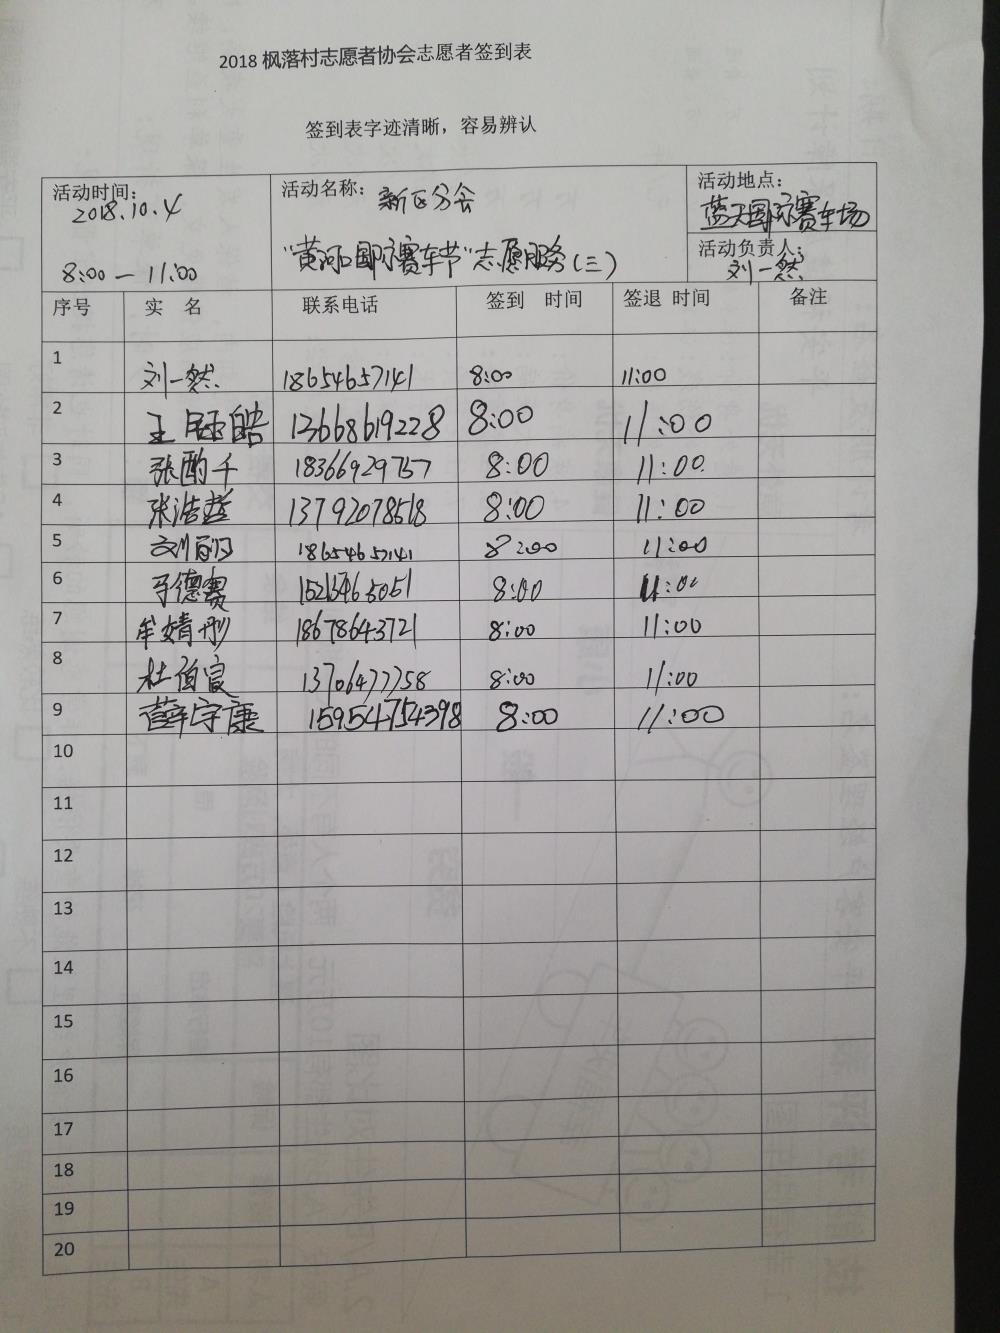 2018 枫落村志愿者协会志愿者签到表
签到表字迹清晰，容易辨认
活动时间： 活动名称： 新区分会 活动地点：
2018.10.4 蓝天国际赛车场
8:00 — 11:00 "黄河口国际赛车节"志愿服务(三) 活动负责人：刘一然
序号 实 名 联系电话 签到 时间 签退 时间 备注
1 刘一然 18654657141 8:00 11:00
2 王钰皓 13668619228 8:00 11:00
3 张酌千 18366929757 8:00 11:00
4 张浩哲 13792078518 8:00 11:00
5 刘 18654657141 8:00 11:00
6 马德赛 8:00 11:00
7 牟婧彤 18678643721 8:00 11:00
8 杜伯宸 13706477758 8:00 11:00
9 薛宇康 15954754398 8:00 11:00
10
11
12
13
14
15
16
17
18
19
20